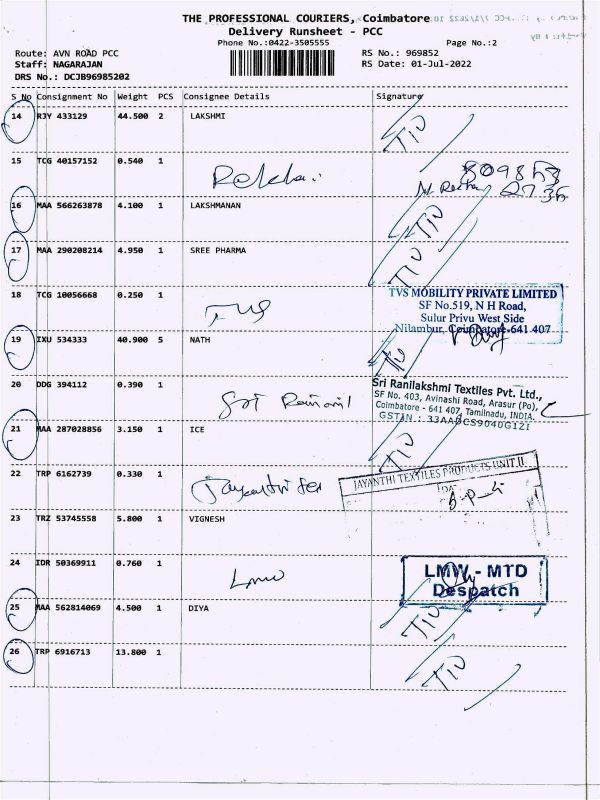 THE PROFESSIONAL COURIERS, Coimbatore
Delivery Runsheet - PCC
Phone No.:0422-3505555
Page No.:2
Route: AVN ROAD PCC
RS No.: 969852
Staff: NAGARAJAN
RS Date: 01-Jul-2022
DRS No.: DCJB96985202
S No Consignment No Weight PCS Consignee Details Signature
14 RJY 433129 44.500 2 LAKSHMI
15 TCG 40157152 0.540 1
16 MAA 566263878 4.100 1 LAKSHMANAN
17 MAA 290208214 4.950 1 SREE PHARMA
18 TCG 10056668 0.250 1
TVS MOBILITY PRIVATE LIMITED
SF No.519, N H Road,
Sulur Privu West Side
Nilambur, Coimbatore-641 407
19 IXU 534333 40.900 5 NATH
20 DDG 394112 0.390 1
Sri Ranilakshmi Textiles Pvt. Ltd.,
SF No. 403, Avinashi Road, Arasur (Po),
Coimbatore - 641 407, Tamilnadu, INDIA.
GSTIN : 33AABCS9040G1ZI
21 MAA 287028856 3.150 1 ICE
22 TRP 6162739 0.330 1
JAYANTHI TEXTILES PRODUCTS UNIT.II
23 TRZ 53745558 5.800 1 VIGNESH
24 IDR 50369911 0.760 1 Lmw
LMW - MTD
Despatch
25 MAA 562814069 4.500 1 DIYA
26 TRP 6916713 13.800 1